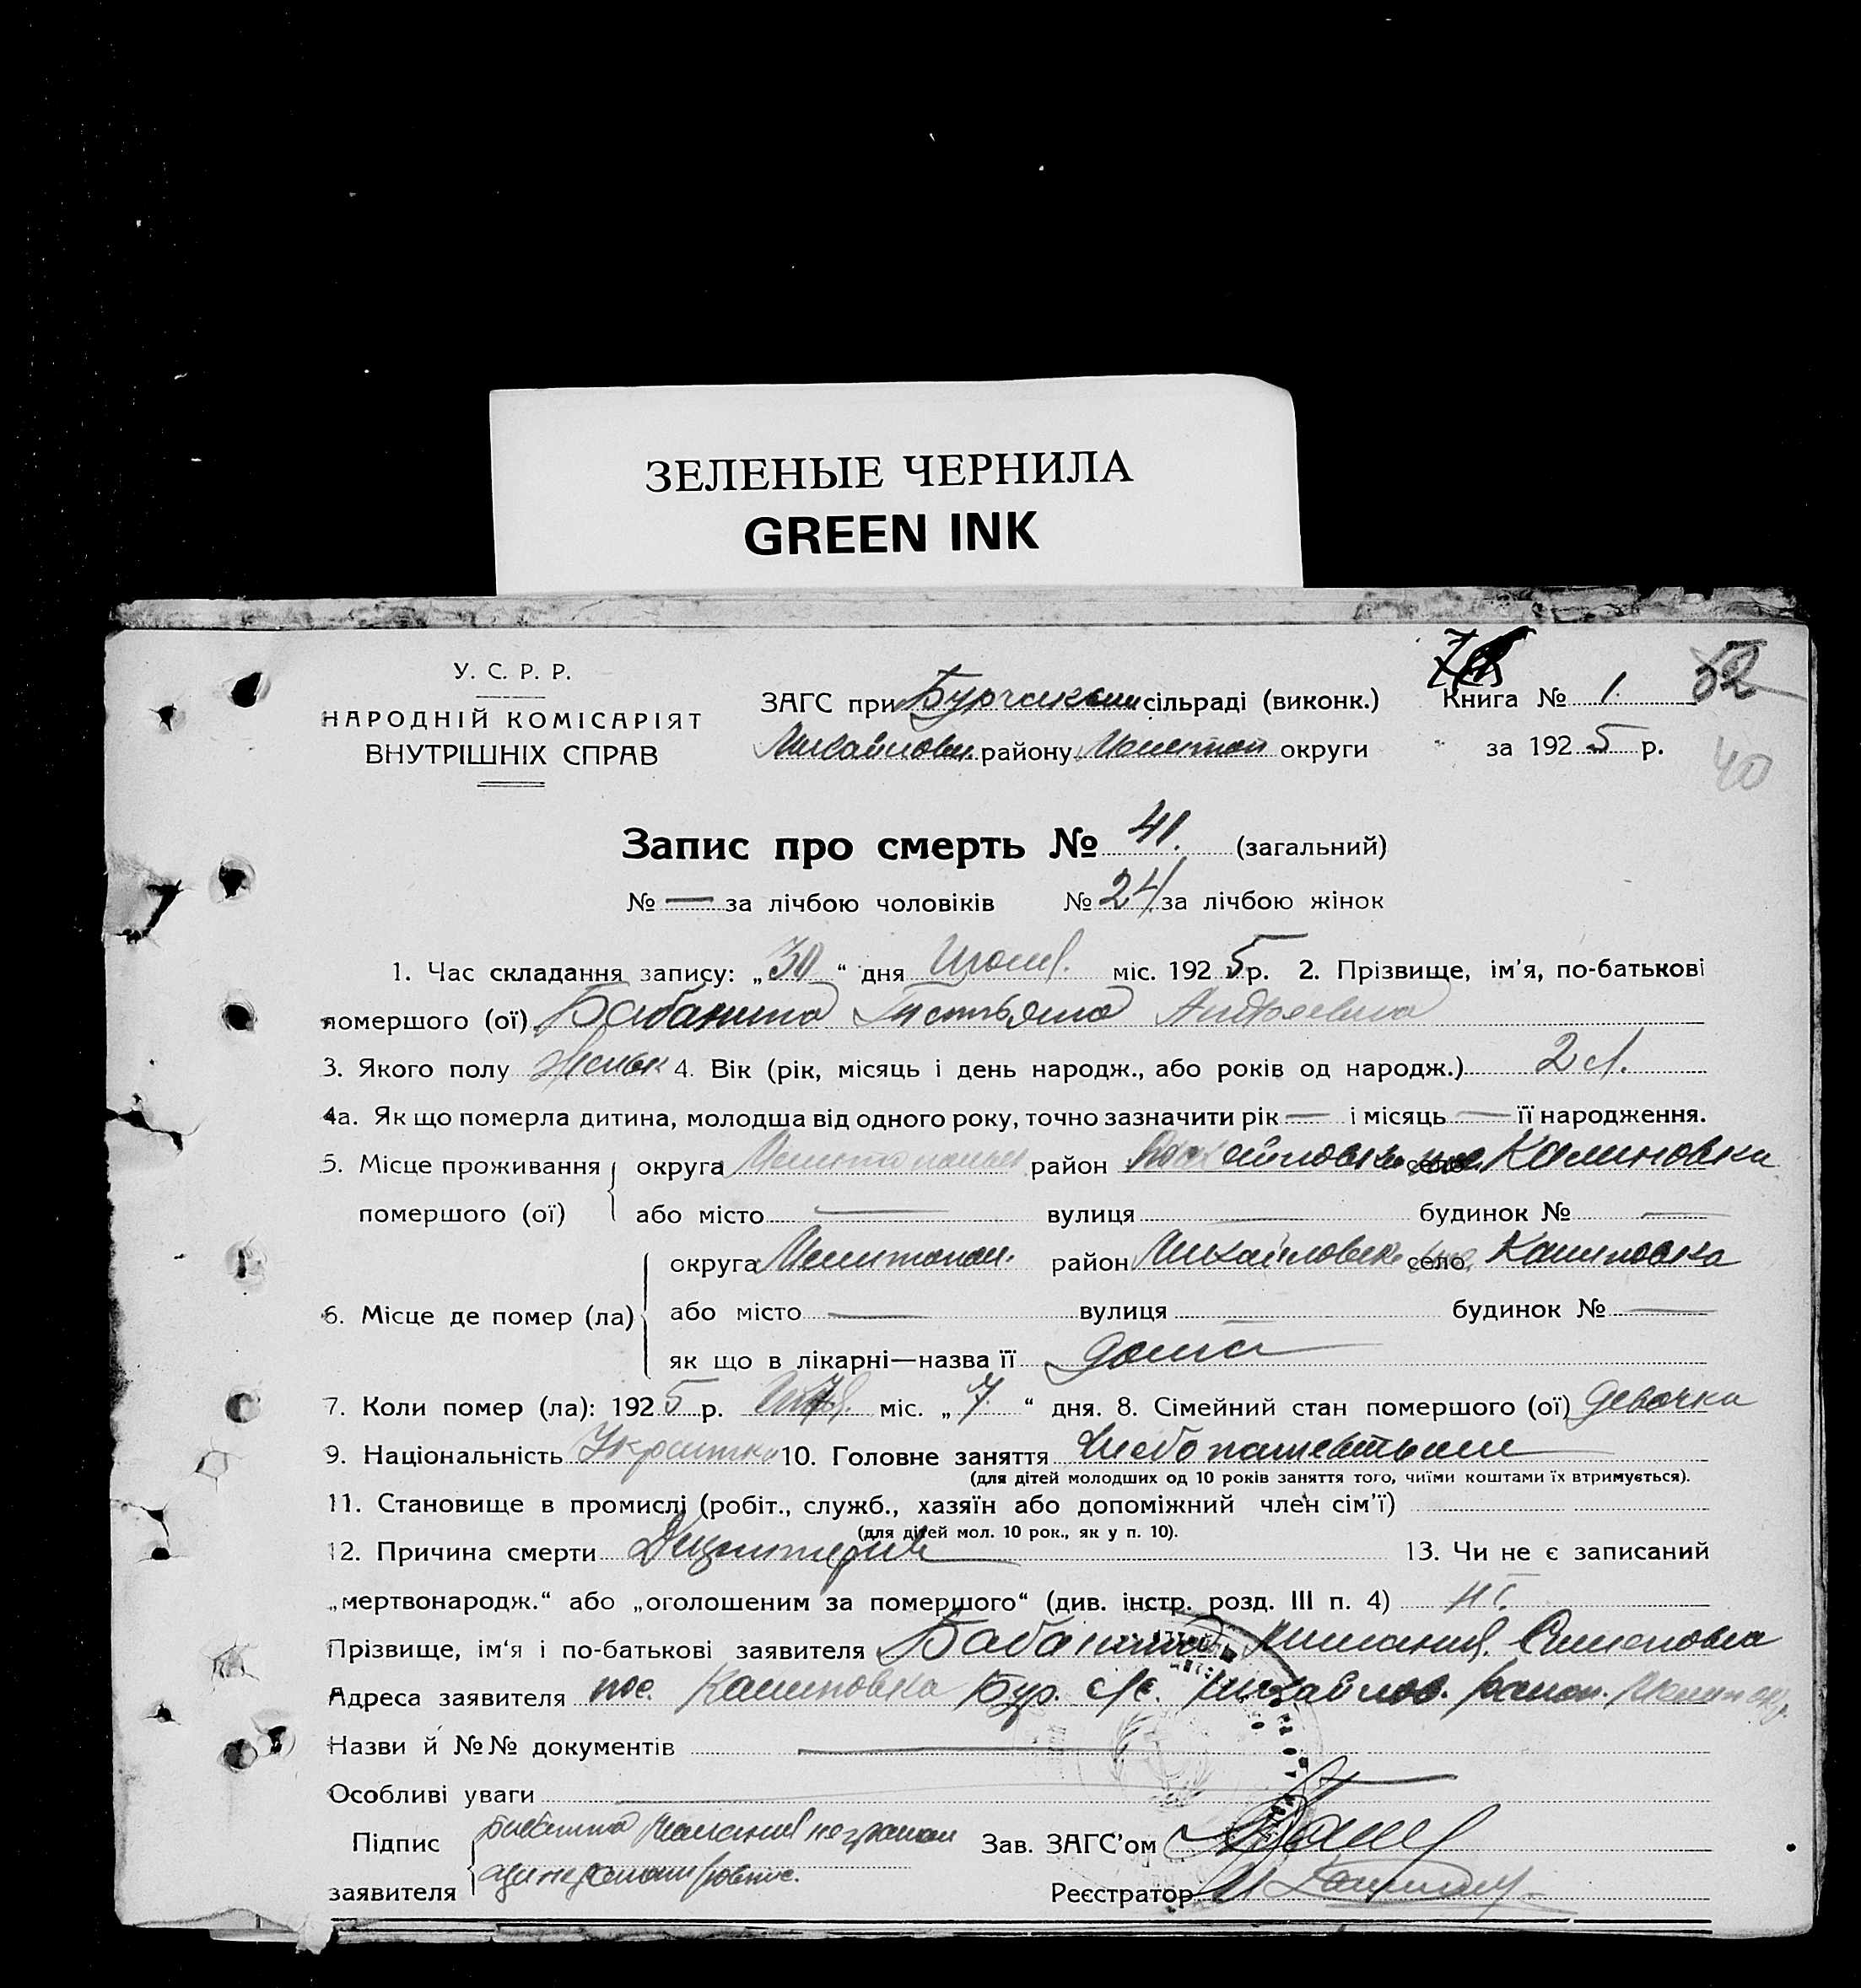 ЗЕЛЕНЫЕ ЧЕРНИЛА
GREEN INK
У. С. Р. Р.
НАРОДНІЙ КОМІСАРІЯТ
ВНУТРІШНІХ СПРАВ
ЗАГС при сільраді (виконк.)
Михайловск. району округи
Книга № 1.
52
за 1925 р.
40
Запис про смерть № 41. (загальний)
№ — за лічбою чоловіків № 24 за лічбою жінок
1. Час складання запису: „30“ дня міс. 1925 р. 2. Прізвище, ім'я, по-батькові
помершого (ої) Бабанина Андреевна
3. Якого полу 4. Вік (рік, місяць і день народж., або років од народж.) 2 л.
4а. Як що померла дитина, молодша від одного року, точно зазначити рік — і місяць — її народження.
5. Місце проживання округа район село Калиновка
помершого (ої) або місто — вулиця — будинок № —
округа Мелитопол. район Михайловск село Калиновка
6. Місце де помер (ла) або місто — вулиця — будинок № —
як що в лікарні—назва її дома
7. Коли помер (ла): 1925 р. міс. „7“ дня. 8. Сімейний стан помершого (ої) девочка
9. Національність Украинка 10. Головне заняття
(для дітей молодших од 10 років заняття того, чиїми коштами їх втримується).
11. Становище в промислі (робіт., служб., хазяїн або допоміжний член сім'ї)
(для дітей мол. 10 рок., як у п. 10).
12. Причина смерти 13. Чи не є записаний
„мертвонародж.“ або „оголошеним за помершого“ (див. інстр. розд. III п. 4)
Прізвище, ім'я і по-батькові заявителя Бабанина Семеновна
Адреса заявителя пос. Калиновка Бур. с/с. Михайлов. район.
Назви й №№ документів —
Особливі уваги —
Підпис
заявителя
Зав. ЗАГС'ом
Реєстратор